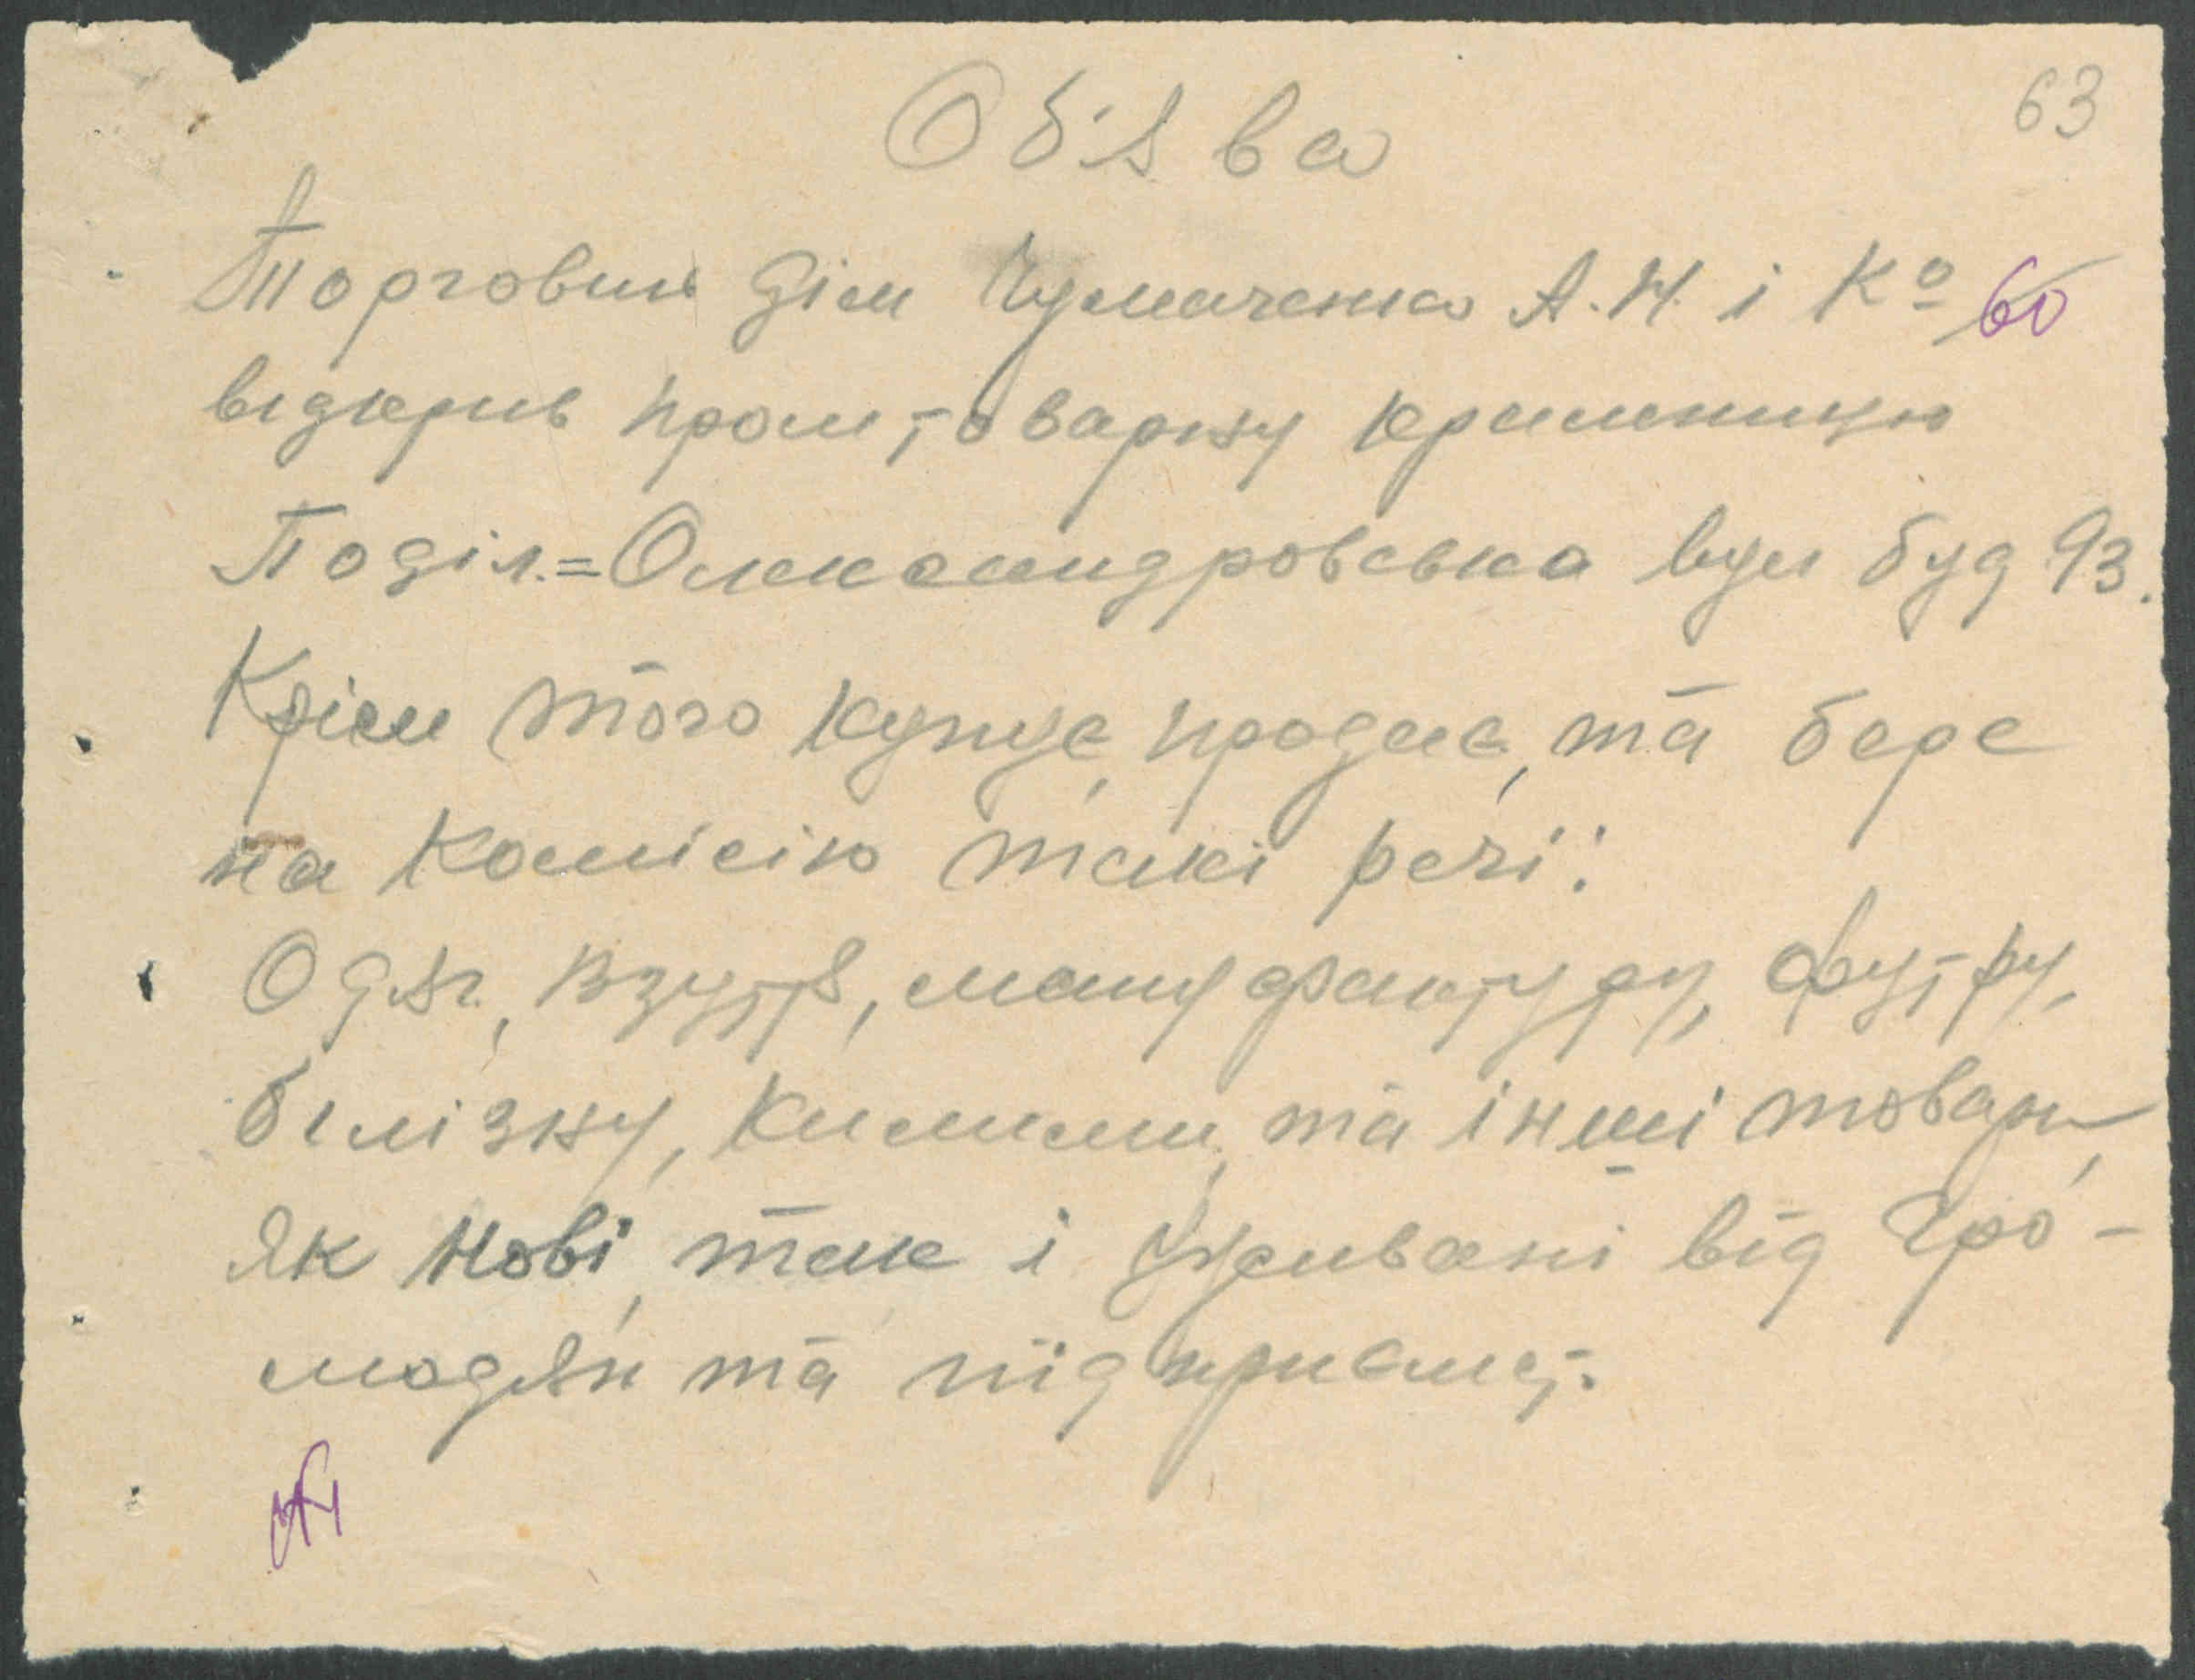 63
Об'ява
Торговий дім Чумаченка А. Н. і Кº
60
відкрив пром-товарну крамницю
Поділ.=Олександровська вул буд 93.
Крім того купує, продає, та бере
на комісію такі речі:
Одяг, взуття, мануфактуру, футру,
білізну, килими, та інші товари,
як нові, так і уживані від гро-
модян та підприємст.